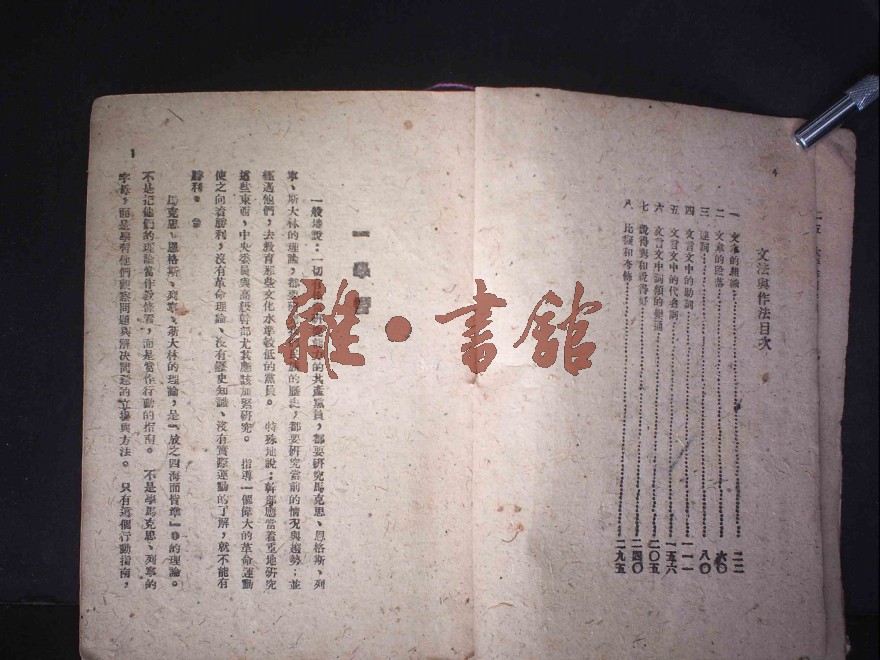 4
文法與作法目次
一 文章的組織 二二
二 文章的段落 六〇
三 虛詞 八〇
四 文言文中的助詞 一一一
五 文言文中的代名詞 一五六
六 文言文中詞類的變通 二〇五
七 說得對和說得好 二四〇
八 比擬和夸飾 二九五
雜·書館
1
一 學習
一般地說:一切有相當研究能力的共產黨員,都要研究馬克思、恩格斯、列
寧、斯大林的理論,都要研究我們民族的歷史,都要研究當前的情況與趨勢;並
經過他們,去教育那些文化水準較低的黨員。 特殊地說:幹部應當着重地研究
這些東西,中央委員與高級幹部尤其應該加緊研究。 指導一個偉大的革命運動
使之向着勝利,沒有革命理論、沒有歷史知識、沒有實際運動的了解,就不能有
勝利。
馬克思、恩格斯、列寧、斯大林的理論,是『放之四海而皆準』的理論。
不是把他們的理論當作教條看,而是當作行動的指南。 不是學馬克思、列寧的
字母,而是學習他們觀察問題與解決問題的立場與方法。 只有這個行動指南,